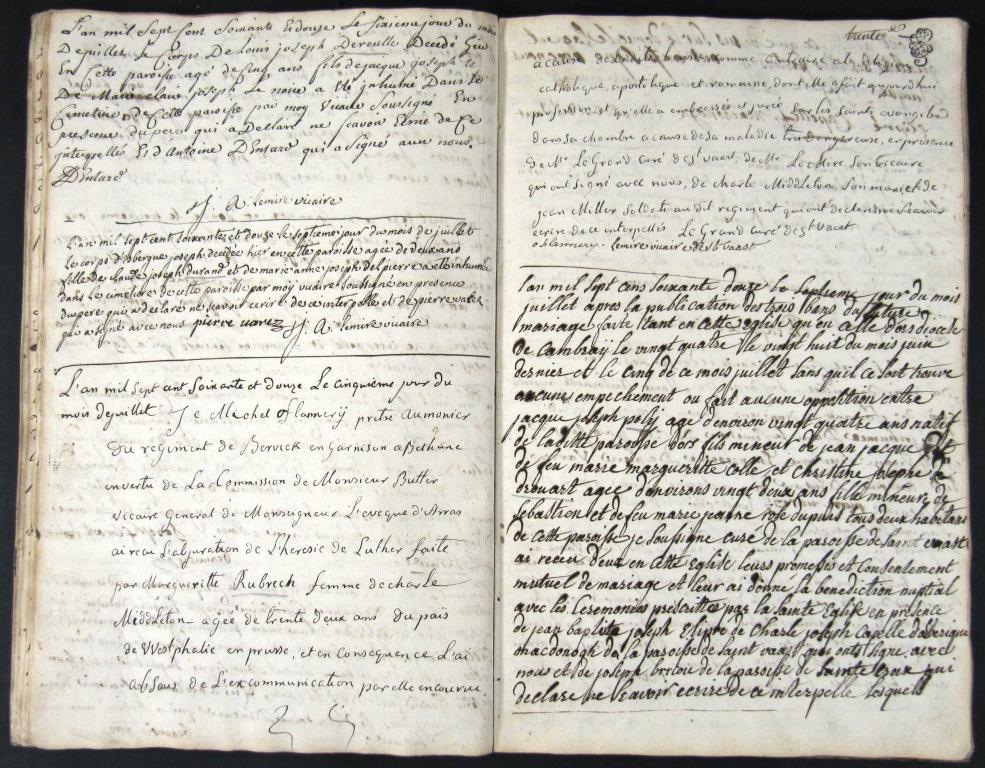 L'an mil sept sent soixante et douse le sixieme jour du mois
De juillet le Corps De Louis joseph Dereulle Decedé hier
En Cette paroise agé de Cinq ans fils de jacque joseph et
De Marie claire joseph Le noue a Eté inhumé Dans le
Cimetiere de Cette paroisse par moy Vicaire Soussigné En
presence du pere qui a Déclaré ne scavoir Ecrire de Ce
interpellés Et d'Antoine D'Entard qui a Signé avec nous.
D'Entard
J. A. Lemire vicaire
L'an mil sept cent soixante et douse le septieme jour du mois de juillet
le corps d' joseph decedée hier en cette paroisse agée de deux ans
fille de claude joseph durand et de marie anne joseph delpierre a eté inhumée
dans le cimetiere de cette paroisse par moy vicaire soussigné en presence
du pere qui a declaré ne scavoir ecrire de ce interpellé et de pierre
qui a signé avec nous pierre J. A. Lemire vicaire
L'an mil sept cent soixante et douze Le cinquieme jour du
mois de juillet Je Michel O flannerij pretre aumonier
du regiment de Bervick en garnison a Bethune
en vertu de La Commission de Monsieur Butter
vicaire General de Monseigneur L'eveque d'Arras
ai recu L'abjuration de L'heresie de Luther faite
par Margueritte Rubrech femme de charle
Middleton agée de trente deux ans du païs
de Westphalie en prusse, et en consequence L'ai
absous de L'excommunication par elle encourue
trente
a cause de la ditte heresie comme contraire a la religion
catholique, apostolique et romaine, dont elle afait aujourdhui
profession et qu'elle a embrassée et jurée sur les saints evangiles
dans sa chambre a cause de sa maladie tres dangereuse, en presence
de Mr Le Grand Curé de st vaast, de Mr. Lemire son vicaire
qui ont signé avec nous, de charle Middleton son mari et de
jean Miller soldats au dit regiment qui ont declaré ne scavoir
ecrire de ce interpellés Le Grand Curé de st Vaast
o flannery Lemire vicaire de st vaast
L'an mil sept cens soixante douze le septieme jour du mois
juillet apres la publication des trois bans du futur
mariage faite tant en cette eglise qu'en celle dors diocese
de Cambraÿ le vingt quatre le vingt huit du mois juin
dernier et le cinq de ce mois juillet sans qu'il ce soit trouvé
aucune empechement ou fait aucune opposition entre
jacque joseph poly agé d'environ vingt quatre ans natif
de laditte paroisse dors fils mineur de jean jacque et
de feu marie margueritte colle et christine joseph
drouart agée d'environs vingt deux ans fille mineure de
Sebastien et de feu marie jeanne rose dupuis tous deux habitans
de cette paroisse je soussigné curé de la paroisse de saint vaast
ai recu d'eux en cette Eglise leurs promesses et consentement
mutuel de mariage et leur ai donné la benediction nuptial
avec les Ceremonies prescrittes par la sainte Eglise en presence
de jean baptiste joseph de Charle joseph Capelle
macdonogh de la paroisse de saint vaast qui ont signé avec
nous et de joseph bretou de la paroisse de sainte croix qui
declaré ne scavoir ecrire de ce interpelle lesquels